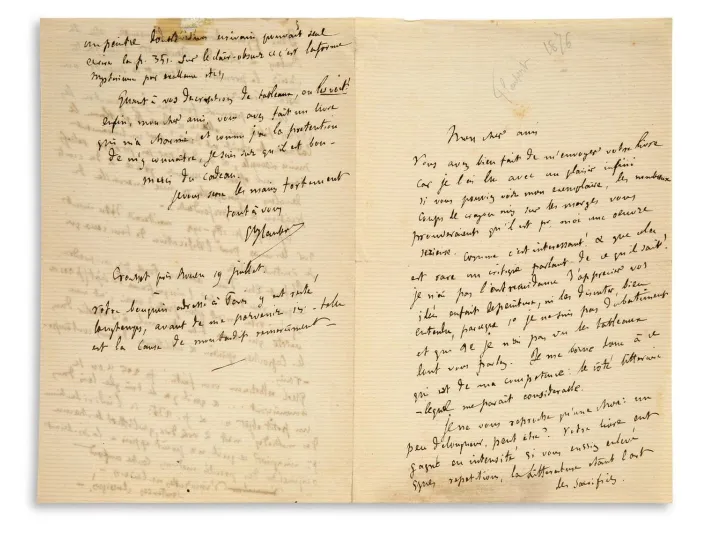 Flaubert 1876
Mon cher ami
Vous avez bien fait de m'envoyer votre livre
car je l'ai lu avec un plaisir infini
si vous pouviez voir mon exemplaire, les nombreux
coups de crayon mis sur les marges vous
prouveraient qu'il est pr moi une œuvre
sérieuse. Comme c'est intéressant! & que cela
est rare un critique parlant de ce qu'il sait!
je n'ai pas l'outrecuidance d'apprécier vos
idées en fait de peinture, ni les discuter bien
entendu, parceque 1º je ne suis pas du bâtiment
et que 2º je n'ai pas vu les tableaux
dont vous parlez. Je me borne donc à ce
qui est de ma compétence: le côté littéraire
– lequel me paraît considérable.
Je ne vous reproche qu'une chose: un
peu de longueur, peut-être? Votre livre eut
gagné en intensité si vous eussiez enlevé
qques répétitions, la Littérature étant l'art
des sacrifices.
un peintre doublé d'un écrivain pouvait seul
écrire la p. 351. Sur le clair-obscur « c'est la forme
mystérieuse par excellence etc »,
Quant à vos descriptions de tableaux, on les voit!
enfin, mon cher ami, vous avez fait un livre
qui m'a charmé; et comme j'ai la prétention
de m'y connaître, je suis sûr qu'il est bon –
merci du cadeau.
je vous serre les mains fortement
tout à vous
G Flaubert
Croisset près Rouen 19 juillet.
Votre bouquin adressé à Paris y est resté
longtemps, avant de me parvenir ici – telle
est la cause de mon tardif remerciement –